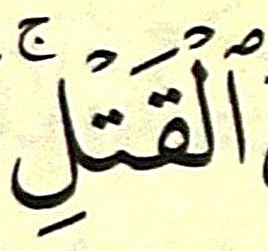 ٱلْقَتْلِۚ